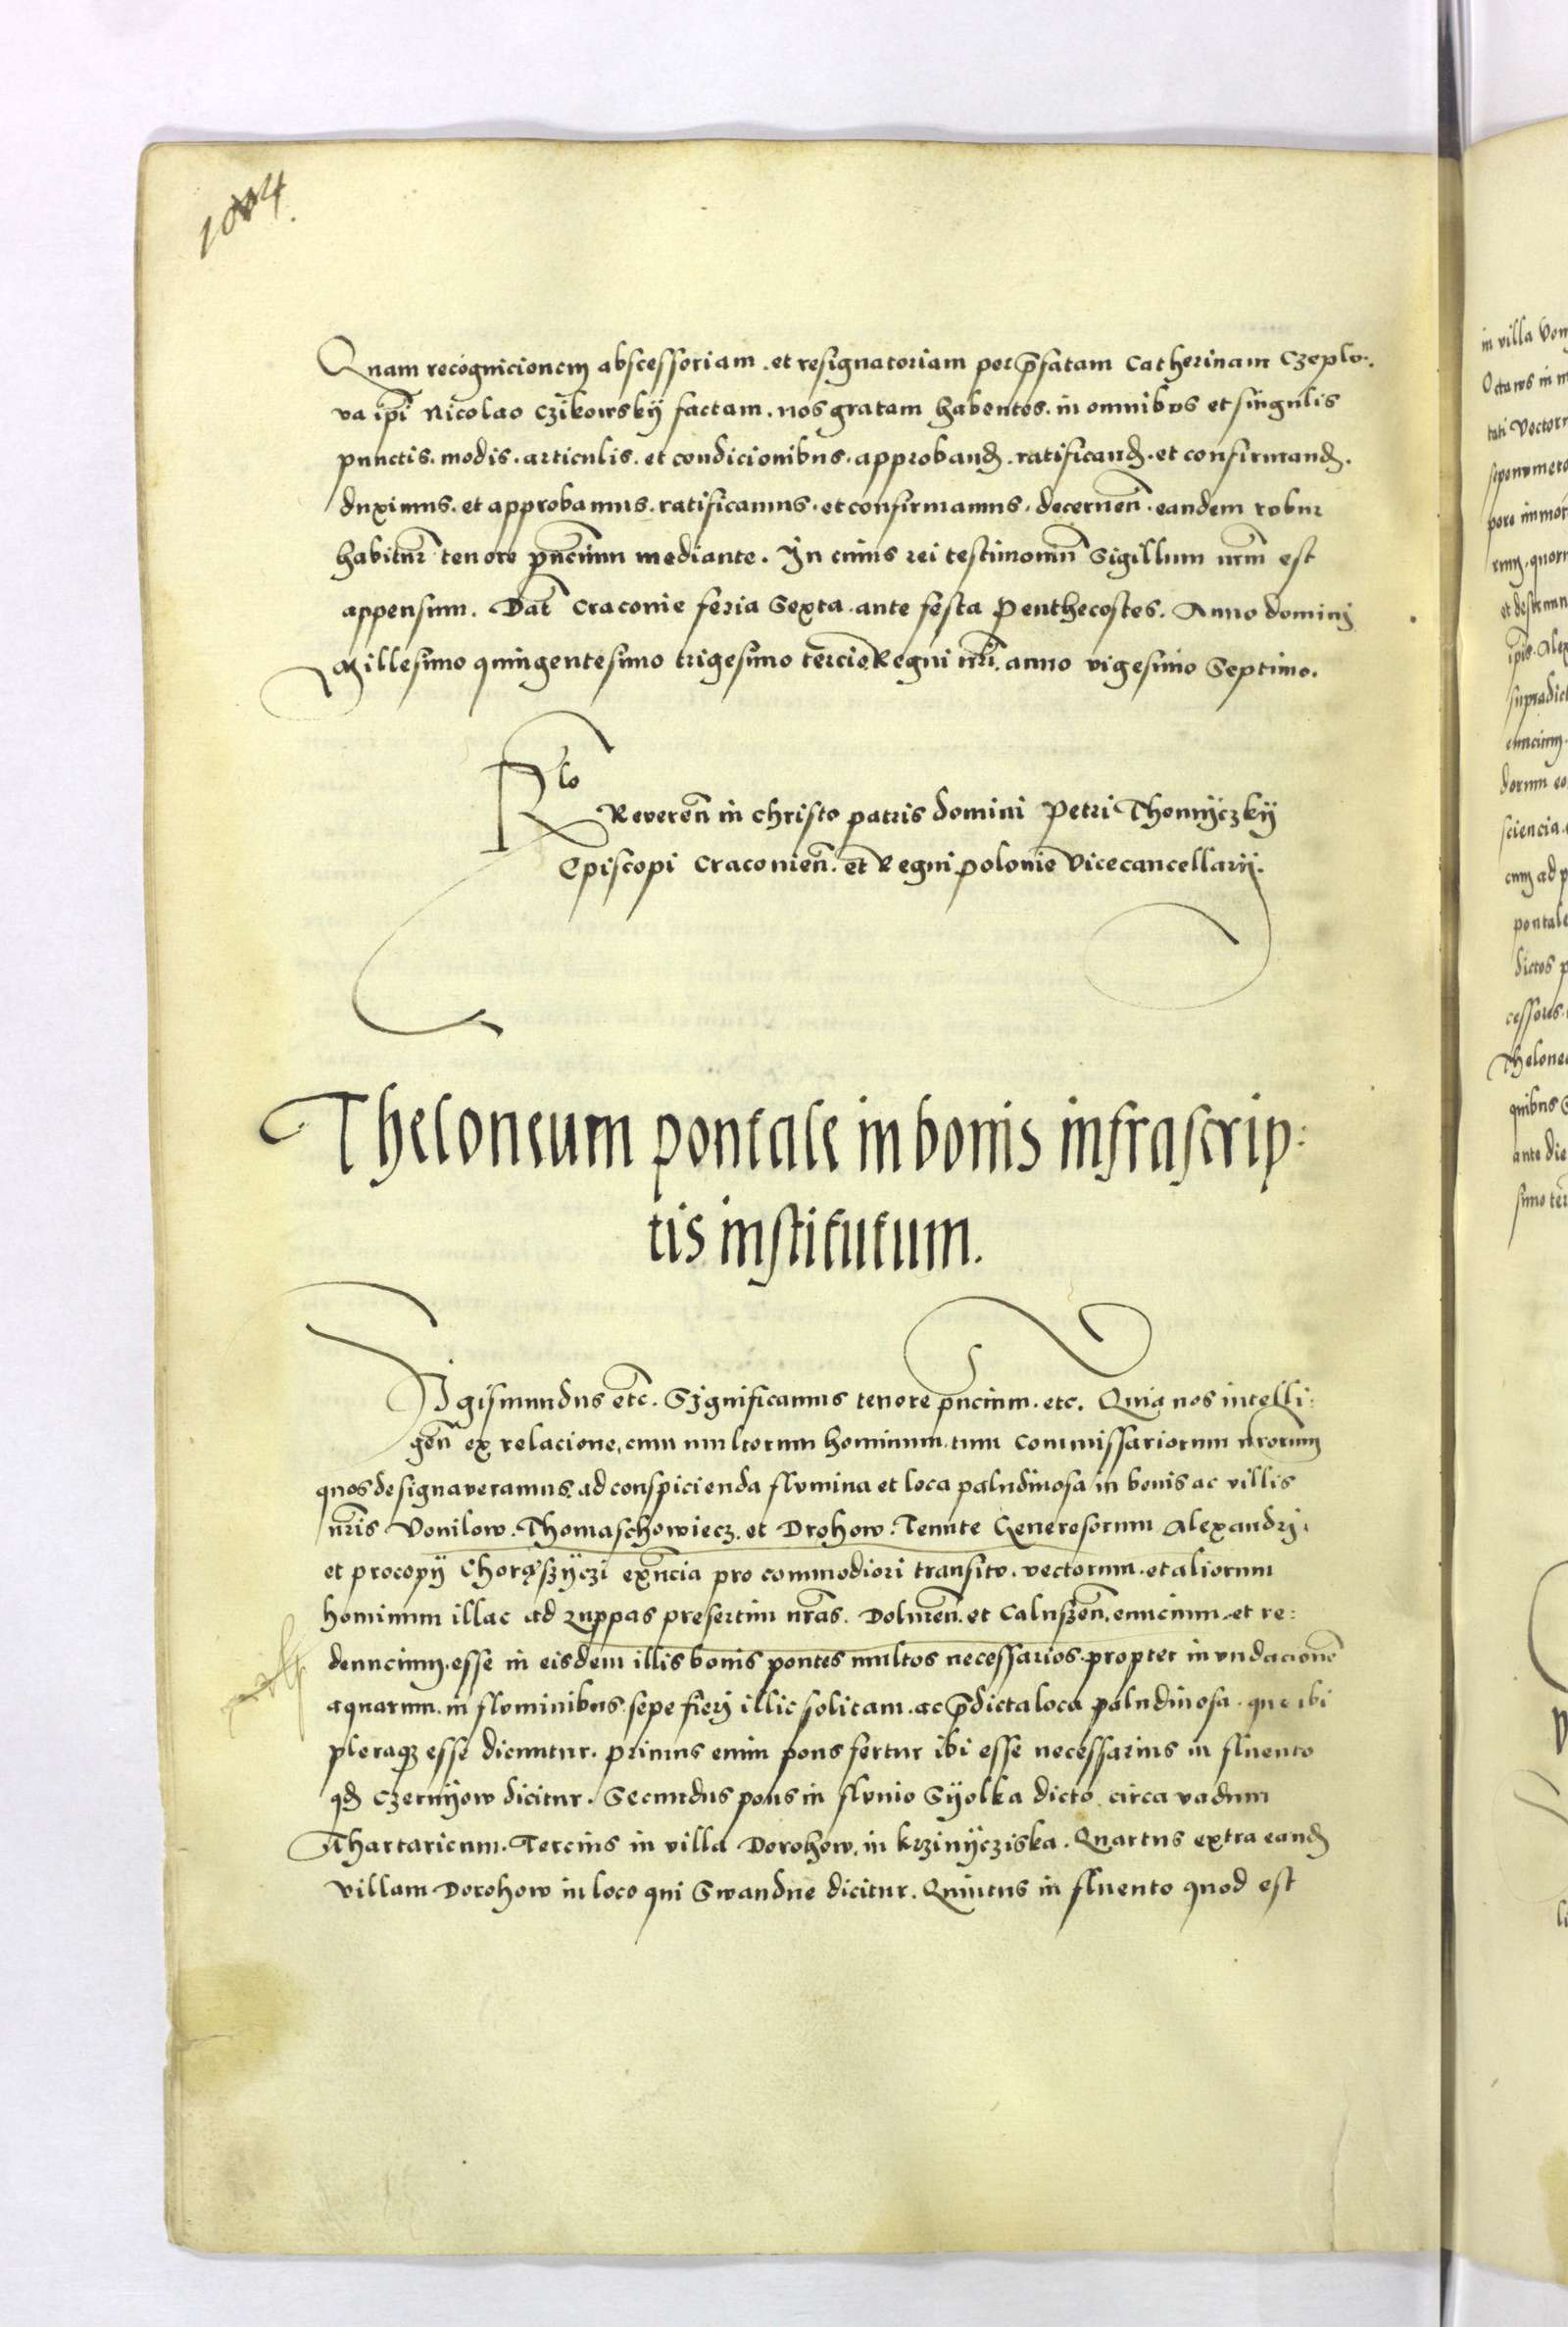 1004.
Quam recognicionem abscessoriam. et resignatoriam per p̄fatam Catherinam Czeplo-
va ip̄i Nicolao Czikowskÿ factam. nos gratam habentes. in omnibus et singulis
punctis. modis. articulis. et condicionibus. approband. ratificand. et confirmand.
duximus. et approbamus. ratificamus. et confirmamus. decernen̄. eandem robur
habitur̄ tenore pn̄cium mediante. In cuius rei testimoniū Sigillum nr̄m est
appensum. Dat̄ Craconie feria Sexta ante festa Penthecostes. Anno domini
Millesimo quingentesimo trigesimo tercio Regni nr̄i. anno vigesimo Septimo.
Rlo
Reveren̄ in christo patris domini Petri Thomÿczkÿ
Episcopi Craconien̄. et Regni polonie Vicecancellarij.
Theloneum pontale in bonis infrascrip:
tis institutum.
Sigismundus etc̄. Significamus tenore pn̄cium. etc. Quia nos intelli:
gen̄ ex relacione, cum multorum hominum. tum Commissariorum nrorum
quos designaveramus. ad conspicienda flumina et loca paludinosa in bonis ac villis
nr̄is Vonilow. Thomaschowiecz. et Drohow. Tenute Generosorum Alexandri.
et procopÿ Choręszÿczi exn̄cia pro commodiori transitu. vectorum. et aliorum
hominum illac ad zuppas presertim nr̄as. Dolinen̄. et Caluszen̄. euncium. et re:
deuncium. esse in eisdem illis bonis pontes multos necessarios. propter inundacionē
aquarum. in fluminibus. sepe fieri illic solitam. ac p̄dicta loca paludinosa. que ibi
pleraqз esse dicuntur. primus enim pons fertur ibi esse necessarius in fluento
qđ Czernÿow dicitur. Secundus pons in fluvio Sÿolka dicto circa vadum
Thartaricum. Tercius in villa Dorohow. in krzinÿcziska. Quartus extra eand
villam Dorohow in loco qui Swandne dicitur. Quintus in fluento quod est